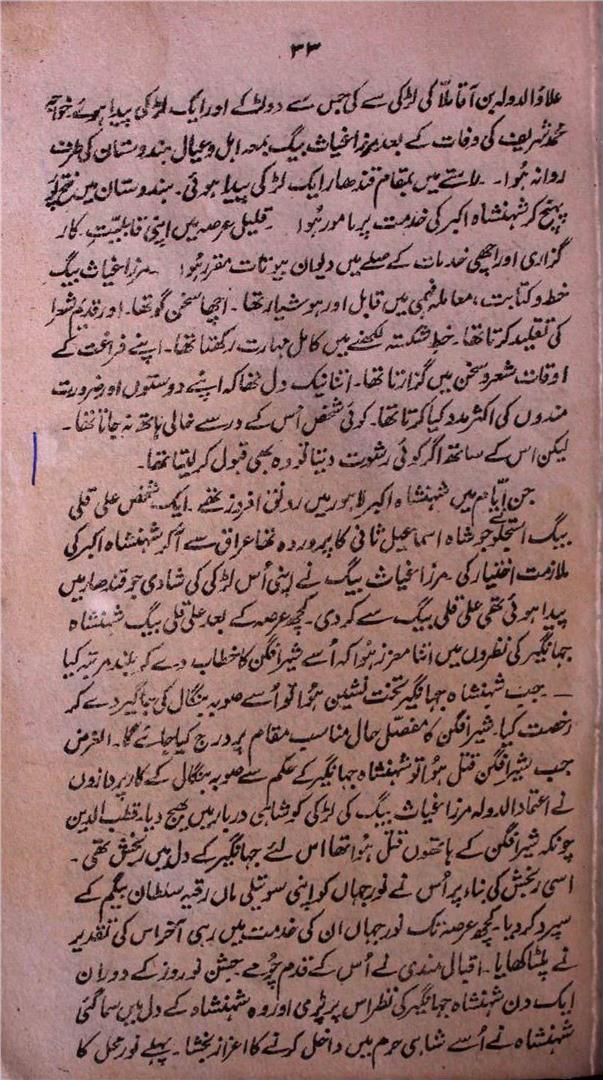 ۳۳
علاؤالدولہ بن آقا ملّا کی لڑکی سے کی جس سے دو لڑکے اور ایک لڑکی پیدا ہوئے خواجہ
محمد شریف کی وفات کے بعد مرزا غیاث بیگ بمعہ اہل و عیال ہندوستان کی طرف
روانہ ہُوا۔ راستے میں بمقام قندھار ایک لڑکی پیدا ہوئی۔ ہندوستان میں
پہنچ کر شہنشاہ اکبر کی خدمت پر مامور ہُوا۔ قلیل عرصہ میں اپنی قابلیّت۔ کار
گزاری اور اچھی خدمات کے صلے میں دیوان بیوتات مقرر ہُوا۔ مرزا غیاث بیگ
خط و کتابت، معاملہ فہمی میں قابل اور ہوشیار تھا۔ اچھا سخن گو تھا۔ اور قدیم شعرا
کی تقلید کرتا تھا۔ خطِ شکستہ لکھنے میں کامل مہارت رکھتا تھا۔ اپنے فراغت کے
اوقات شعر و سخن میں گزارتا تھا۔ اتنا نیک دل تھا کہ اپنے دوستوں اور ضرورت
مندوں کی اکثر مدد کیا کرتا تھا۔ کوئی شخص اُس کے در سے خالی ہاتھ نہ جاتا تھا۔
لیکن اس کے ساتھ اگر کوئی رشوت دیتا تو وہ بھی قبول کر لیتا تھا۔
جن ایّام میں شہنشاہ اکبر لاہور میں رونق افروز تھے۔ ایک شخص علی قلی
بیگ استجلو جو شاہ اسماعیل ثانی کا پروردہ تھا عراق سے آکر شہنشاہ اکبر کی
ملازمت اختیار کی۔ مرزا غیاث بیگ نے اپنی اُس لڑکی کی شادی جو قندھار میں
پیدا ہوئی تھی علی قلی بیگ سے کر دی۔ کچھ عرصہ کے بعد علی قلی بیگ شہنشاہ
جہانگیر کی نظروں میں اتنا معزز ہُوا کہ اُسے شیر افگن کا خطاب دے کر بلند مرتبہ کیا
۔ جب شہنشاہ جہانگیر تخت نشین ہُوا تو اُسے صوبہ بنگال کی جاگیر دے کر
رخصت کیا۔ شیر افگن کا مفصّل حال مناسب مقام پر درج کیا جائے گا۔ الغرض
جب شیر افگن قتل ہُوا تو شہنشاہ جہانگیر کے حکم سے صوبہ بنگال کے کارپردازوں
نے اعتماد الدولہ مرزا غیاث بیگ کی لڑکی کو شاہی دربار میں بھیج دیا۔ قطب الدین
چونکہ شیر افگن کے ہاتھوں قتل ہُوا تھا اس لئے جہانگیر کے دل میں رنجش تھی۔
اسی رنجش کی بناء پر اُس نے نور جہاں کو اپنی سوتیلی ماں رقیہ سلطان بیگم کے
سپرد کر دیا۔ کچھ عرصہ تک نور جہاں ان کی خدمت میں رہی آخر اس کی تقدیر
نے پلٹا کھایا۔ اقبال مندی نے اُس کے قدم چُومے جشن نوروز کے دوران
ایک دن شہنشاہ جہانگیر کی نظر اس پر پڑی اور وہ شہنشاہ کے دل میں سما گئی
شہنشاہ نے اُسے شاہی حرم میں داخل کرنے کا اعزاز بخشا۔ پہلے نور محل کا